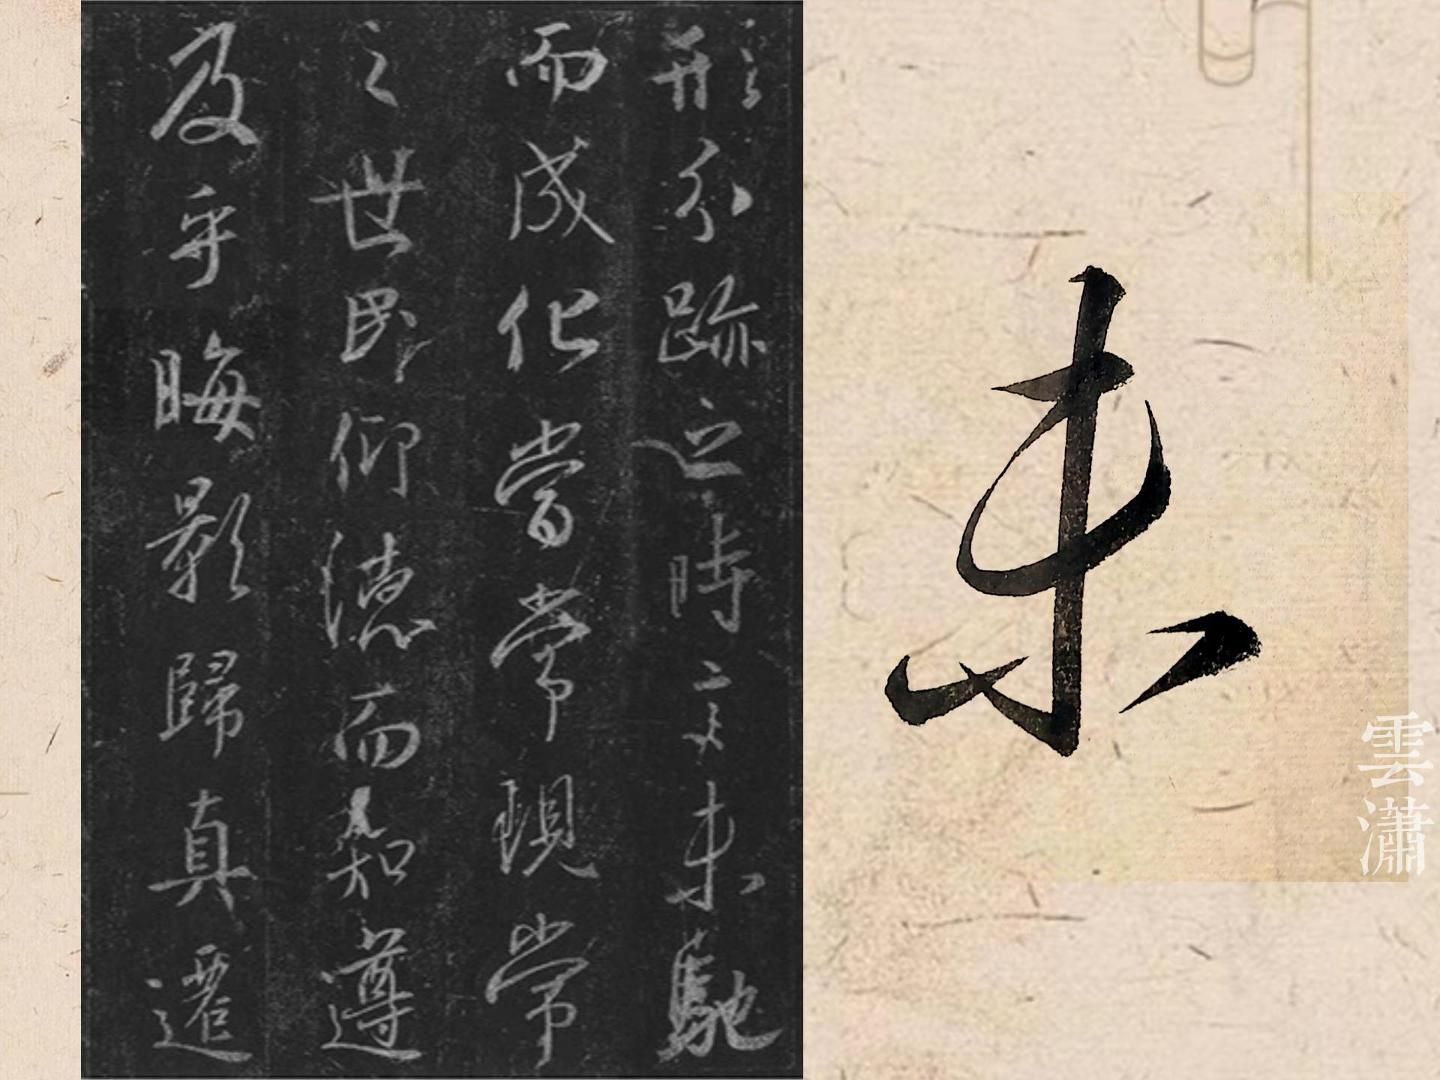 形分跡之時言未馳
而成化當常現常
之世民仰德而知遵
及乎晦影歸真遷
未
雲瀟